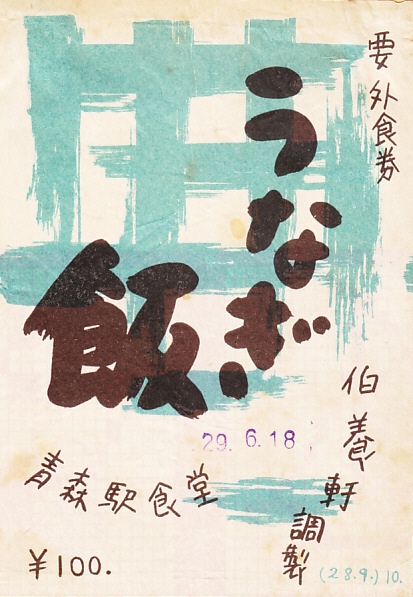 要外食券
うなぎ
飯
伯養軒
調製
29. 6.18
青森駅食堂
¥100.
(28.9.) 10.